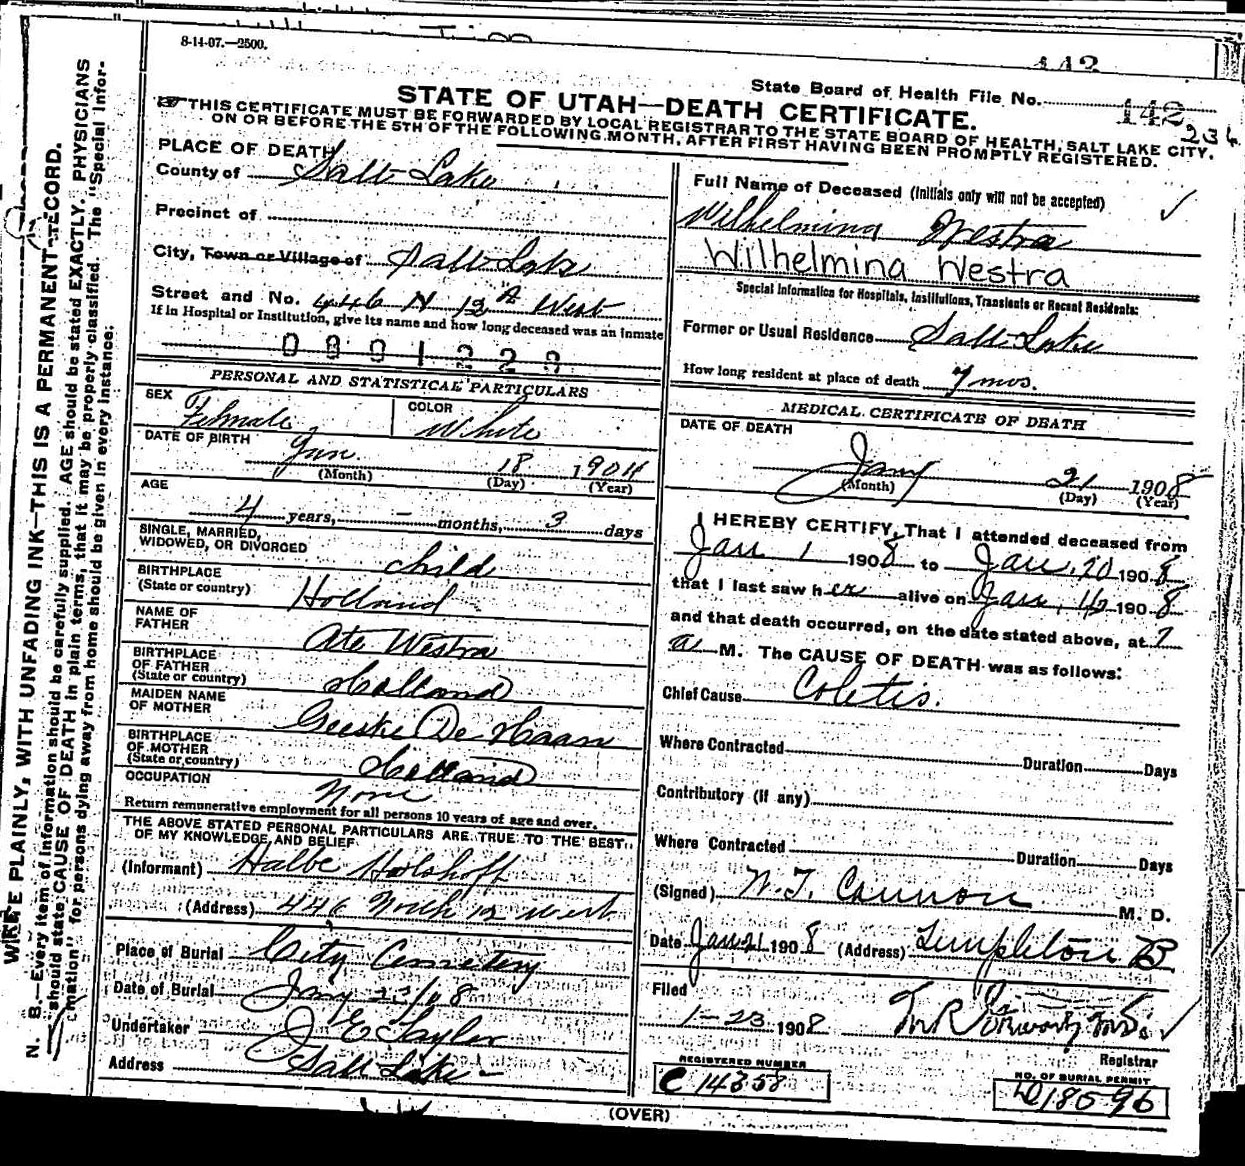 8-14-07.—2500.
142
State Board of Health File No. 142
234
STATE OF UTAH—DEATH CERTIFICATE.
☞ THIS CERTIFICATE MUST BE FORWARDED BY LOCAL REGISTRAR TO THE STATE BOARD OF HEALTH, SALT LAKE CITY,
ON OR BEFORE THE 5TH OF THE FOLLOWING MONTH, AFTER FIRST HAVING BEEN PROMPTLY REGISTERED.
WRITE PLAINLY, WITH UNFADING INK—THIS IS A PERMANENT RECORD.
N. B.—Every item of information should be carefully supplied. AGE should be stated EXACTLY. PHYSICIANS
should state CAUSE OF DEATH in plain terms, that it may be properly classified. The "Special Infor-
mation" for persons dying away from home should be given in every instance.
PLACE OF DEATH
County of Salt Lake
Precinct of
City, Town or Village of Salt Lake
Street and No. 446 N 12 West
If in Hospital or Institution, give its name and how long deceased was an inmate
PERSONAL AND STATISTICAL PARTICULARS
SEX Female COLOR White
DATE OF BIRTH Jan. 18 1904
(Month) (Day) (Year)
AGE
4 years, - months, 3 days
SINGLE, MARRIED,
WIDOWED, OR DIVORCED child
BIRTHPLACE
(State or country) Holland
NAME OF
FATHER Ate Westra
BIRTHPLACE
OF FATHER
(State or country) Holland
MAIDEN NAME
OF MOTHER Geeske De Haan
BIRTHPLACE
OF MOTHER
(State or country) Holland
OCCUPATION None
Return remunerative employment for all persons 10 years of age and over.
THE ABOVE STATED PERSONAL PARTICULARS ARE TRUE TO THE BEST
OF MY KNOWLEDGE AND BELIEF
(Informant) Halbe Holshoff
(Address) 446 North 12 West
Place of Burial City Cemetery
Date of Burial Jany 23/08
Undertaker J E Taylor
Address Salt Lake
Full Name of Deceased (Initials only will not be accepted)
Wilhelmina Westra
Wilhelmina Westra
Special Information for Hospitals, Institutions, Transients or Recent Residents:
Former or Usual Residence Salt Lake
How long resident at place of death 7 mos.
MEDICAL CERTIFICATE OF DEATH
DATE OF DEATH
Jany 21 1908
(Month) (Day) (Year)
I HEREBY CERTIFY, That I attended deceased from
Jan 1 1908 to Jan. 20 1908
that I last saw her alive on Jan. 1908
and that death occurred, on the date stated above, at 7
a M. The CAUSE OF DEATH was as follows:
Chief Cause Coletis.
Where Contracted Duration Days
Contributory (if any)
Where Contracted Duration Days
(Signed) W. T. Cannon M. D.
Date Jan 21 1908 (Address) Templeton B
Filed
1-23 1908
Registrar
REGISTERED NUMBER
C 14358
NO. OF BURIAL PERMIT
D18596
(OVER)